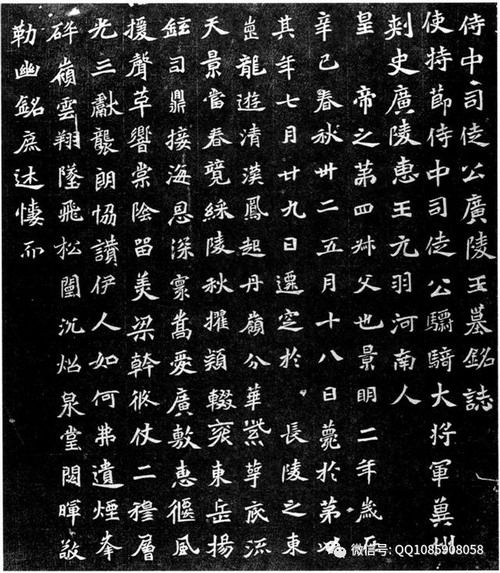 侍中司徒公廣陵王墓銘誌
使持節侍中司徒公驃騎大将軍冀州
刺史廣陵惠王元羽河南人
皇帝之第四叔父也景明二年歲在
辛巳春秋卅二五月十八日薨於第以
其年七月廿九日遷窆於 長陵之東
崗龍遊清漢鳳起丹嶺分華紫萼底流
天景當春覽綵陵秋擢穎輟袞東岳揚
鉉司鼎接海恩深稟嵩愛廣敷惠偃風
援聲革響棠陰留美梁幹脩仗二穆層
光三獻襲朗協讚伊人如何弗遺煙峯
碎嶺雲翔墜飛松闈沉炤泉堂閟暉敬
勒幽銘庶述悽而
微信号: QQ1085908058